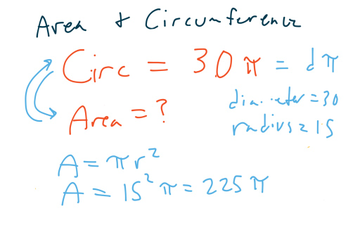 Area & Circumference
Circ = 30 π = d π
diameter = 30
Area = ?
radius = 15
A = π r²
A = 15² π = 225 π